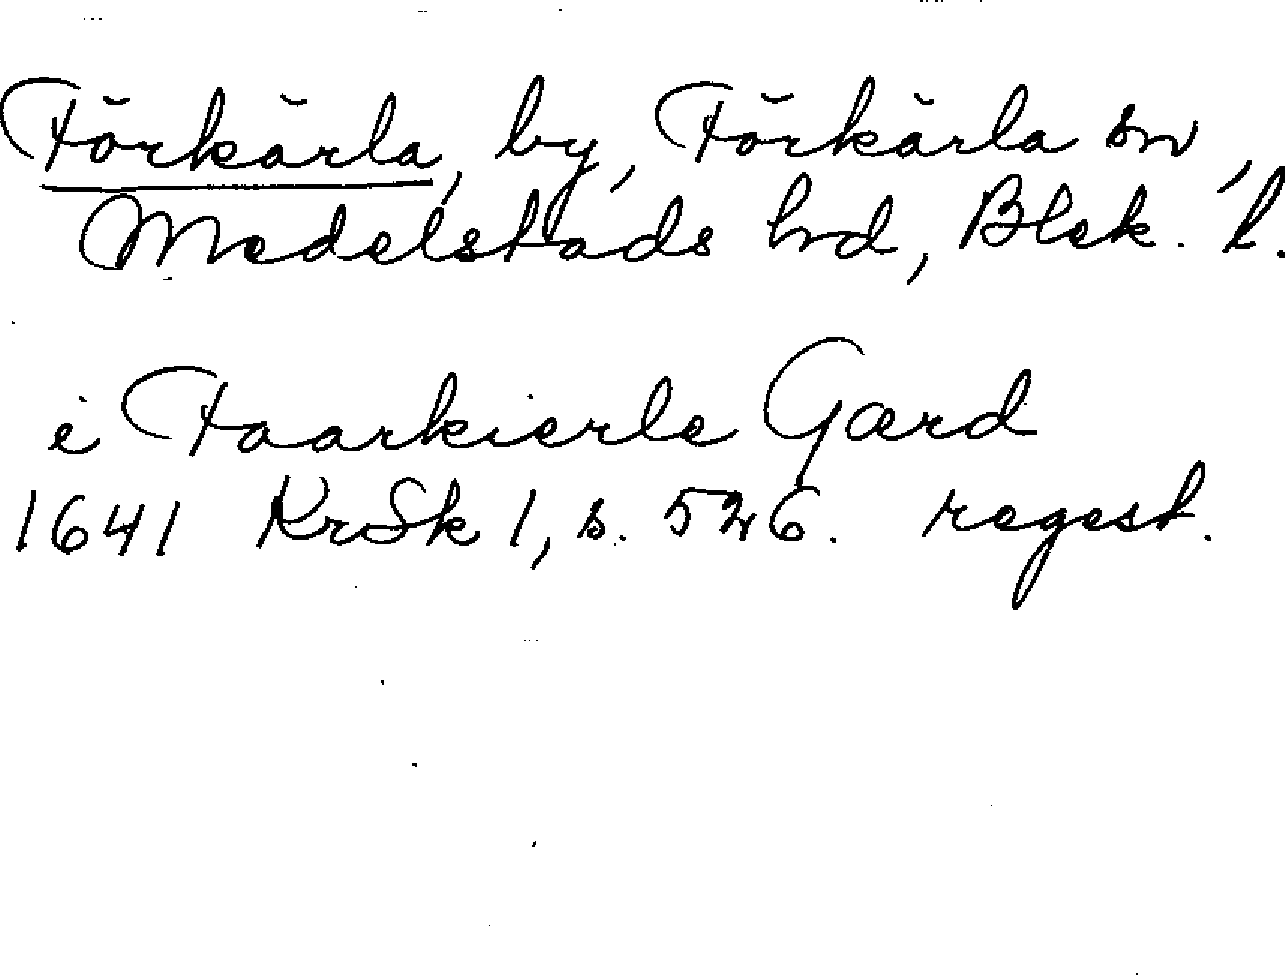 Förkärla, by, Förkärla sn,
Medelstads hrd, Blek. l.
i Faarkierle Gard
1641 KrSk 1, s. 526. regest.